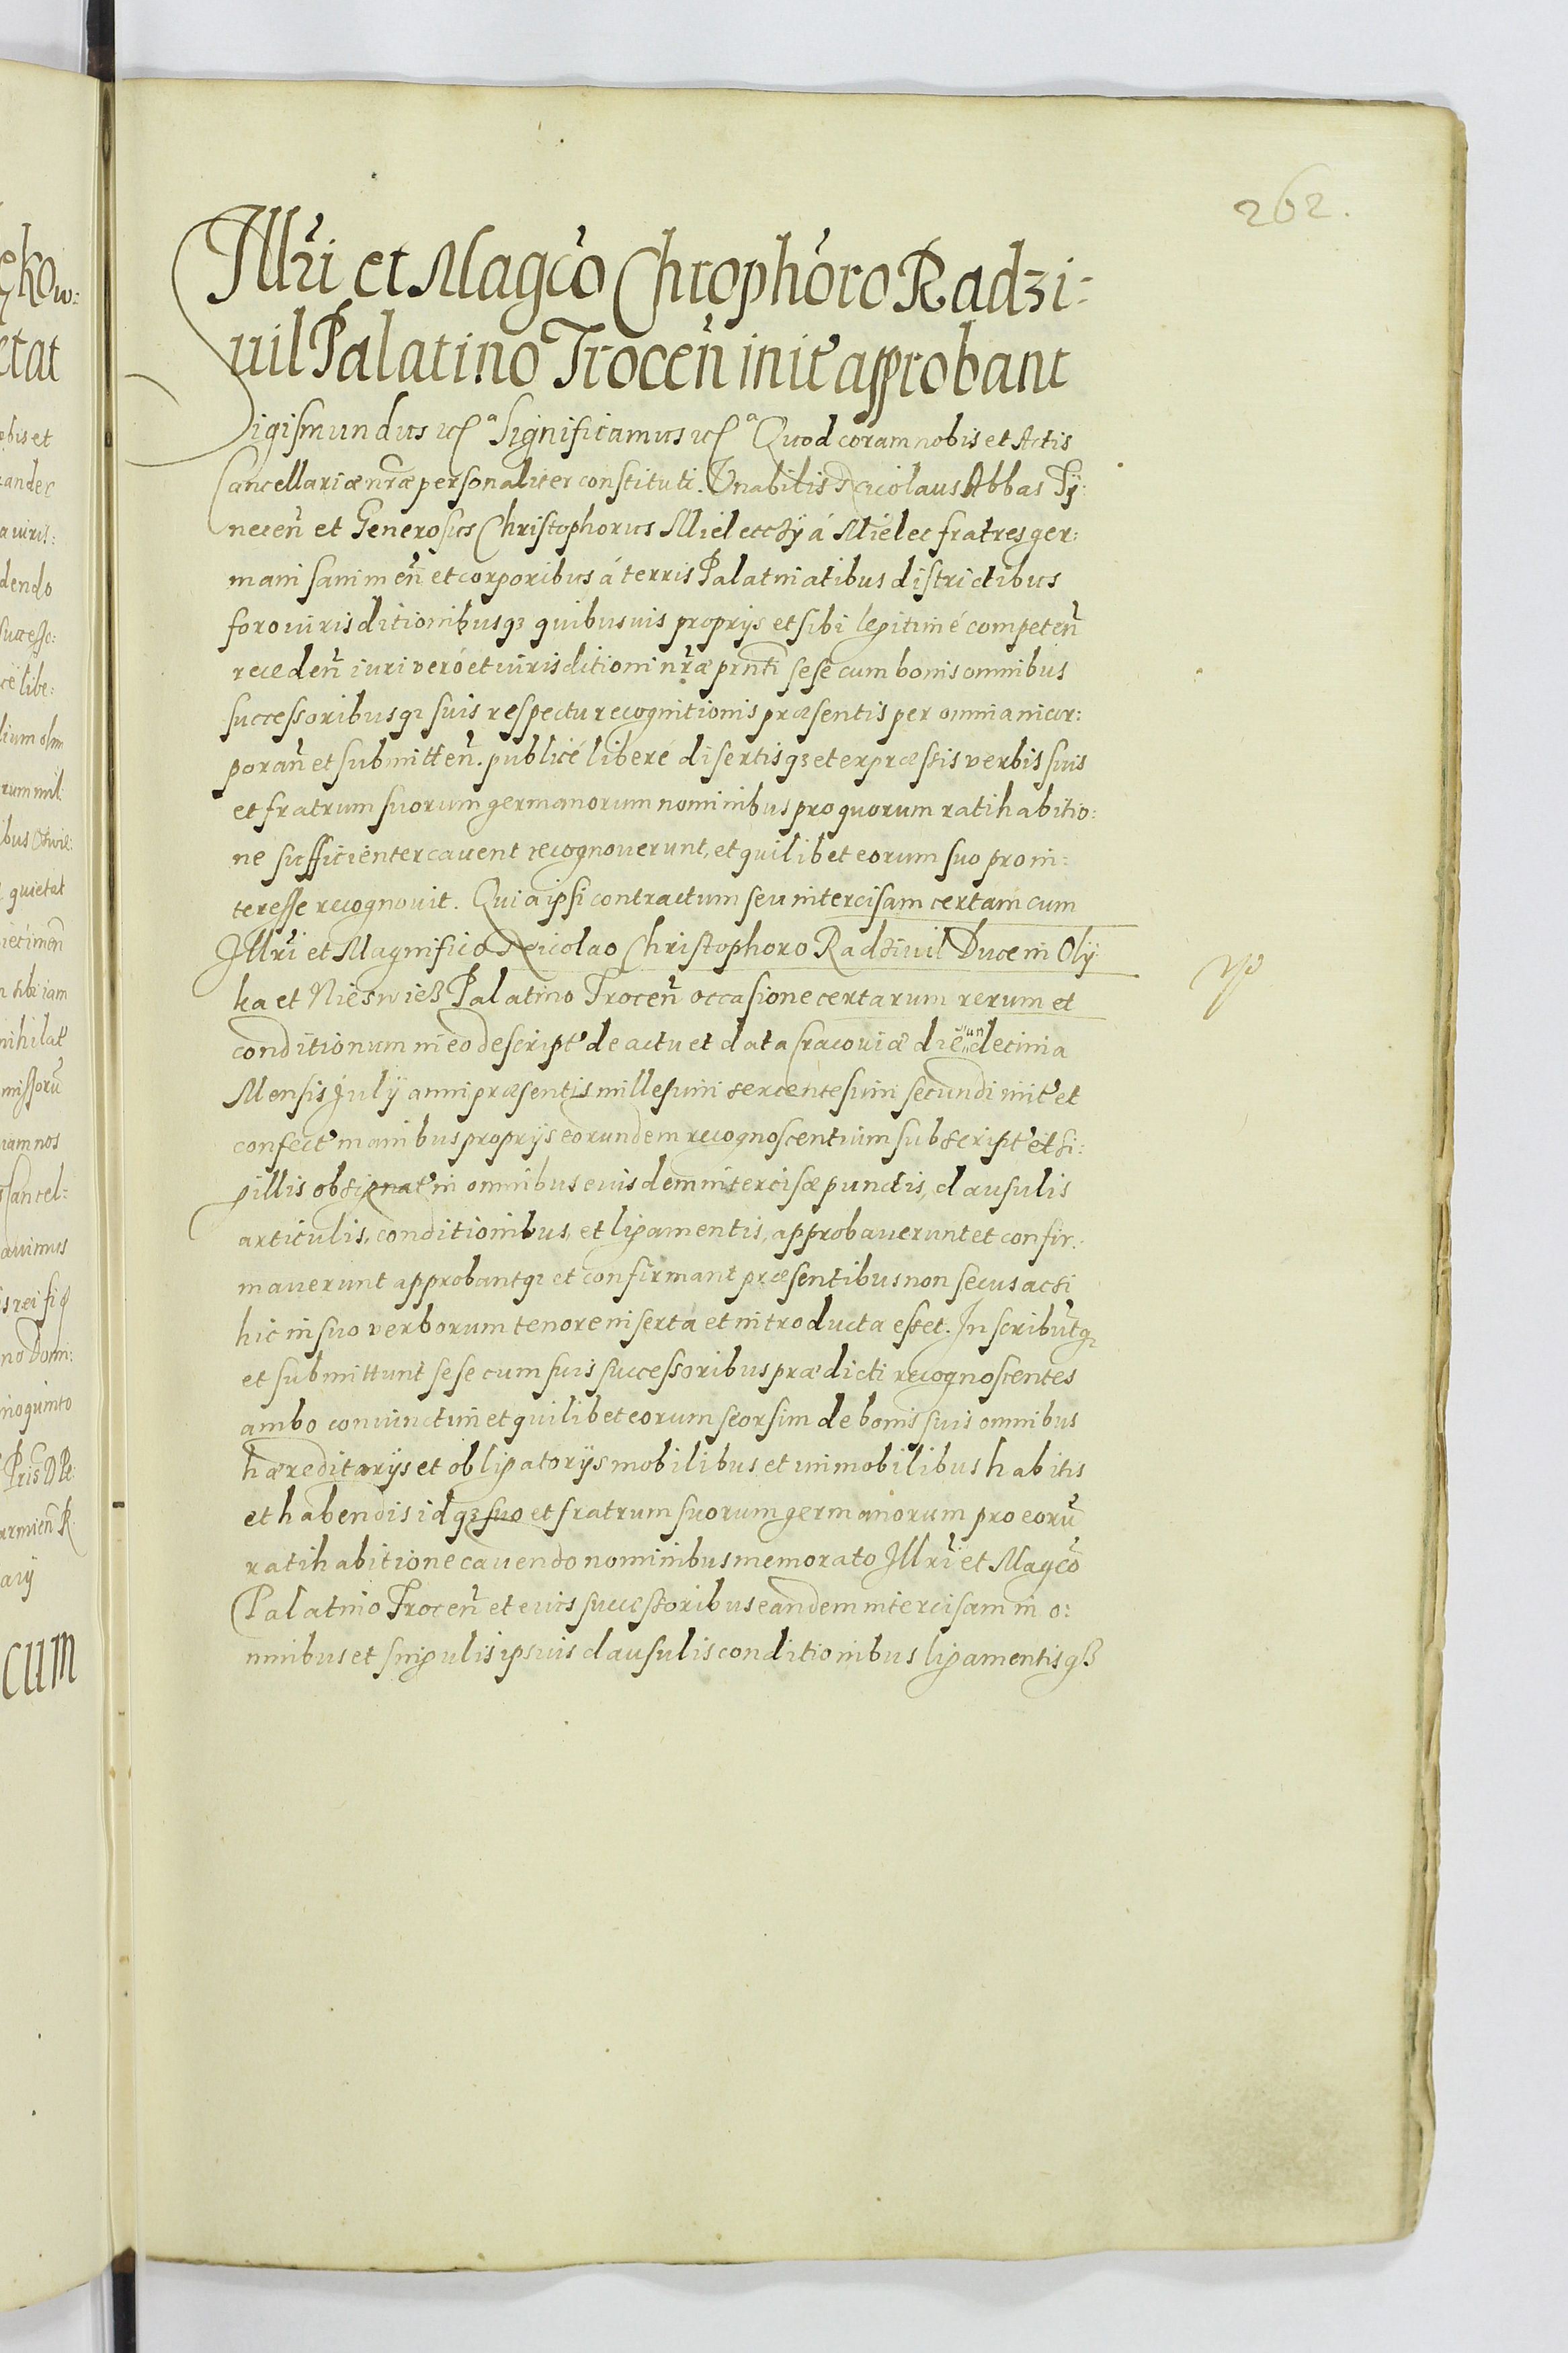 262.
Illri et Magco Chrophoro Radzi-
uil Palatino Trocen init approbant
Sigismundus etc a Significamus etc a Quod coram nobis et Actis
Cancellariæ nræ personaliter constituti. Vnabilis Nicolaus Abbas Ty:
necen et Generosus Christophorus Mielecckÿ á Mielec fratres ger:
mani sani men et corporibus á terris Palatinatibus districtibus
foro iurisditionibusq3 quibusuis proprÿs et sibi legitimé competen
receden iuri veró et iurisditioni nræ prnti sese cum bonis omnibus
successoribusq3 suis respectu recognitionis præsentis per omnia incor:
poran et submitten. publicé liberé disertisq3 et expræssis verbis suis
et fratrum suorum germanorum nominibus pro quorum ratihabitio:
ne sufficienter cauent recognouerunt, et quilibet eorum suo pro in:
teresse recognouit. Quia ipsi contractum seu intercisam certam cum
Illri et Magnifico Nicolao Christophoro Radziuil Duce in Olÿ
ka et Nieswież Palatino Trocen occasione certarum rerum et
conditionum in eo descript de actu et data Cracouiæ die undecima
Mensis Julÿ anni præsentis millesimi sexcentesimi secundi init et
confect manibus proprÿs eorundem recognoscentium subscript et si:
gillis obsignat in omnibus euisdem intercisæ punctis, clausulis
articulis, conditionibus, et ligamentis, approbauerunt et confir:
mauerunt approbantq3 et confirmant præsentibus non secus acsi
hic in suo verborum tenore inserta et introducta esset. Inscributq3
et submittunt sese cum suis successoribus prædicti recognoscentes
ambo coniunctim et quilibet eorum seorsim de bonis suis omnibus
hæreditarÿs et obligatorÿs mobilibus et immobilibus habitis
et habendis idq3 suo et fratrum suorum germanorum pro eoru
ratihabitione cauendo nominibus memorato Illri et Magco
Palatino Trocen et eius successoribus eandem intercisam in o:
mnibus et singulis ipsius clausulis conditionibus ligamentisq3